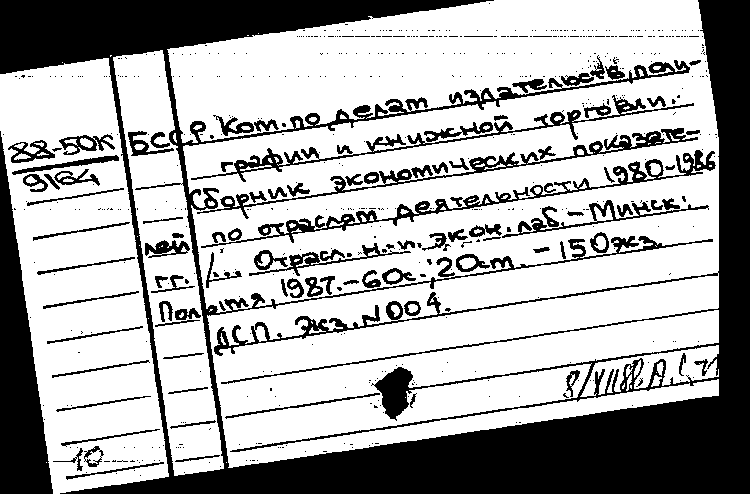 88-50К
9164
БССР. Ком. по делат издательств, поли-
графии и книжной торговли.
Сборник экономических показате-
лей по отраслят деятельности 1980-1986
гг. /... Отрасл. н.-и. экон. лаб. - Минск:
Полытя, 1987. - 60с.; 20ст. - 150экз.
ДСП. Экз. N004.
10